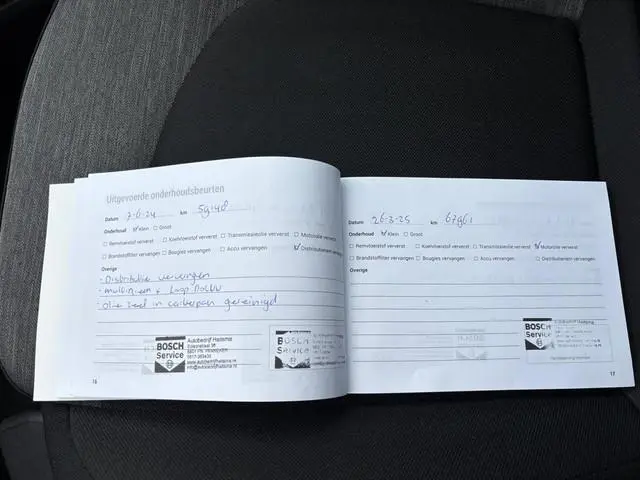 Uitgevoerde onderhoudsbeurten
Datum 7-6-24 km 59148
Onderhoud ☑ Klein ☐ Groot
☐ Remvloeistof ververst ☐ Koelvloeistof ververst ☐ Transmissieolie ververst ☐ Motorolie ververst
☐ Brandstoffilter vervangen ☐ Bougies vervangen ☐ Accu vervangen ☑ Distributieriem vervangen
Overige
- Distributie vervangen
- multiriem +
- olie zeef in carterpan gereinigd
BOSCH
Service
Autobedrijf Hadisma
www.autobedrijfhadisma.nl
info@autobedrijfhadisma.nl
BOSCH
Service
16
Datum 26-3-25 km 67961
Onderhoud ☑ Klein ☐ Groot
☐ Remvloeistof ververst ☐ Koelvloeistof ververst ☐ Transmissieolie ververst ☑ Motorolie ververst
☐ Brandstoffilter vervangen ☐ Bougies vervangen ☐ Accu vervangen ☐ Distributieriem vervangen
Overige
BOSCH
Service
17